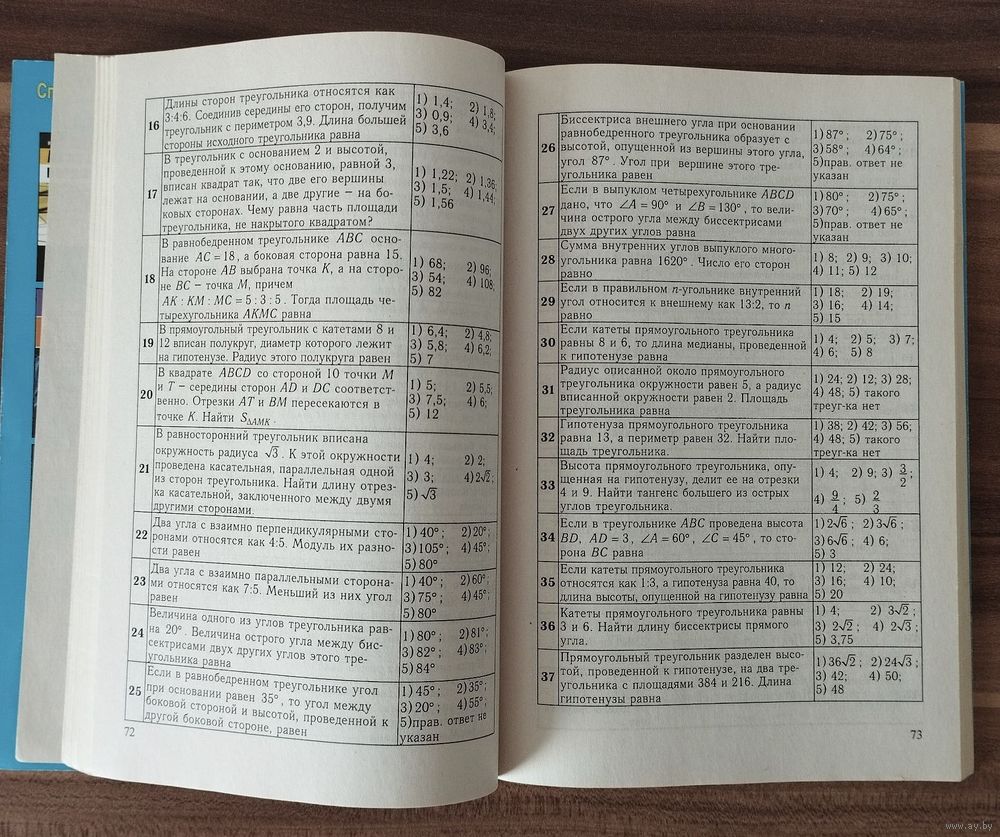 Сп
16
Длины сторон треугольника относятся как
3:4:6. Соединив середины его сторон, получим
треугольник с периметром 3,9. Длина большей
стороны исходного треугольника равна
1) 1,4; 2) 1,8;
3) 0,9; 4) 3,4;
5) 3,6
17
В треугольник с основанием 2 и высотой,
проведенной к этому основанию, равной 3,
вписан квадрат так, что две его вершины
лежат на основании, а две другие – на бо-
ковых сторонах. Чему равна часть площади
треугольника, не накрытого квадратом?
1) 1,22; 2) 1,36;
3) 1,5; 4) 1,44;
5) 1,56
18
В равнобедренном треугольнике ABC осно-
вание AC = 18, а боковая сторона равна 15.
На стороне AB выбрана точка K, а на сторо-
не BC – точка M, причем
AK : KM : MC = 5 : 3 : 5. Тогда площадь че-
тырехугольника AKMC равна
1) 68; 2) 96;
3) 54; 4) 108;
5) 82
19
В прямоугольный треугольник с катетами 8 и
12 вписан полукруг, диаметр которого лежит
на гипотенузе. Радиус этого полукруга равен
1) 6,4; 2) 4,8;
3) 5,8; 4) 6,2;
5) 7
20
В квадрате ABCD со стороной 10 точки M
и T – середины сторон AD и DC соответст-
венно. Отрезки AT и BM пересекаются в
точке K. Найти S△AMK.
1) 5; 2) 5,5;
3) 7,5; 4) 6;
5) 12
21
В равносторонний треугольник вписана
окружность радиуса √3. К этой окружности
проведена касательная, параллельная одной
из сторон треугольника. Найти длину отрез-
ка касательной, заключенного между двумя
другими сторонами.
1) 4; 2) 2;
3) 3; 4) 2√2;
5) √3
22
Два угла с взаимно перпендикулярными сто-
ронами относятся как 4:5. Модуль их разно-
сти равен
1) 40°; 2) 20°;
3) 105°; 4) 45°;
5) 80°
23
Два угла с взаимно параллельными сторона-
ми относятся как 7:5. Меньший из них угол
равен
1) 40°; 2) 60°;
3) 75°; 4) 45°;
5) 80°
24
Величина одного из углов треугольника рав-
на 20°. Величина острого угла между бис-
сектрисами двух других углов этого тре-
угольника равна
1) 80°; 2) 81°;
3) 82°; 4) 83°;
5) 84°
25
Если в равнобедренном треугольнике угол
при основании равен 35°, то угол между
боковой стороной и высотой, проведенной к
другой боковой стороне, равен
1) 45°; 2) 35°;
3) 20°; 4) 55°;
5) прав. ответ не
указан
72
26
Биссектриса внешнего угла при основании
равнобедренного треугольника образует с
высотой, опущенной из вершины этого угла,
угол 87°. Угол при вершине этого тре-
угольника равен
1) 87°; 2) 75°;
3) 58°; 4) 64°;
5) прав. ответ не
указан
27
Если в выпуклом четырехугольнике ABCD
дано, что ∠A = 90° и ∠B = 130°, то вели-
чина острого угла между биссектрисами
двух других углов равна
1) 80°; 2) 75°;
3) 70°; 4) 65°;
5) прав. ответ не
указан
28
Сумма внутренних углов выпуклого много-
угольника равна 1620°. Число его сторон
равно
1) 8; 2) 9; 3) 10;
4) 11; 5) 12
29
Если в правильном n-угольнике внутренний
угол относится к внешнему как 13:2, то n
равно
1) 18; 2) 19;
3) 16; 4) 14;
5) 15
30
Если катеты прямоугольного треугольника
равны 8 и 6, то длина медианы, проведенной
к гипотенузе равна
1) 4; 2) 5; 3) 7;
4) 6; 5) 8
31
Радиус описанной около прямоугольного
треугольника окружности равен 5, а радиус
вписанной окружности равен 2. Площадь
треугольника равна
1) 24; 2) 12; 3) 28;
4) 48; 5) такого
треуг-ка нет
32
Гипотенуза прямоугольного треугольника
равна 13, а периметр равен 32. Найти пло-
щадь треугольника.
1) 38; 2) 42; 3) 56;
4) 48; 5) такого
треуг-ка нет
33
Высота прямоугольного треугольника, опу-
щенная на гипотенузу, делит ее на отрезки
4 и 9. Найти тангенс большего из острых
углов треугольника.
1) 4; 2) 9; 3) 3/2;
4) 9/4; 5) 2/3
34
Если в треугольнике ABC проведена высота
BD, AD = 3, ∠A = 60°, ∠C = 45°, то сто-
рона BC равна
1) 2√6; 2) 3√6;
3) 6√6; 4) 6;
5) 3
35
Если катеты прямоугольного треугольника
относятся как 1:3, а гипотенуза равна 40, то
длина высоты, опущенной на гипотенузу равна
1) 12; 2) 24;
3) 16; 4) 10;
5) 20
36
Катеты прямоугольного треугольника равны
3 и 6. Найти длину биссектрисы прямого
угла.
1) 4; 2) 3√2;
3) 2√2; 4) 2√3;
5) 3,75
37
Прямоугольный треугольник разделен высо-
той, проведенной к гипотенузе, на два тре-
угольника с площадями 384 и 216. Длина
гипотенузы равна
1) 36√2; 2) 24√3;
3) 42; 4) 50;
5) 48
73
www.ay.by